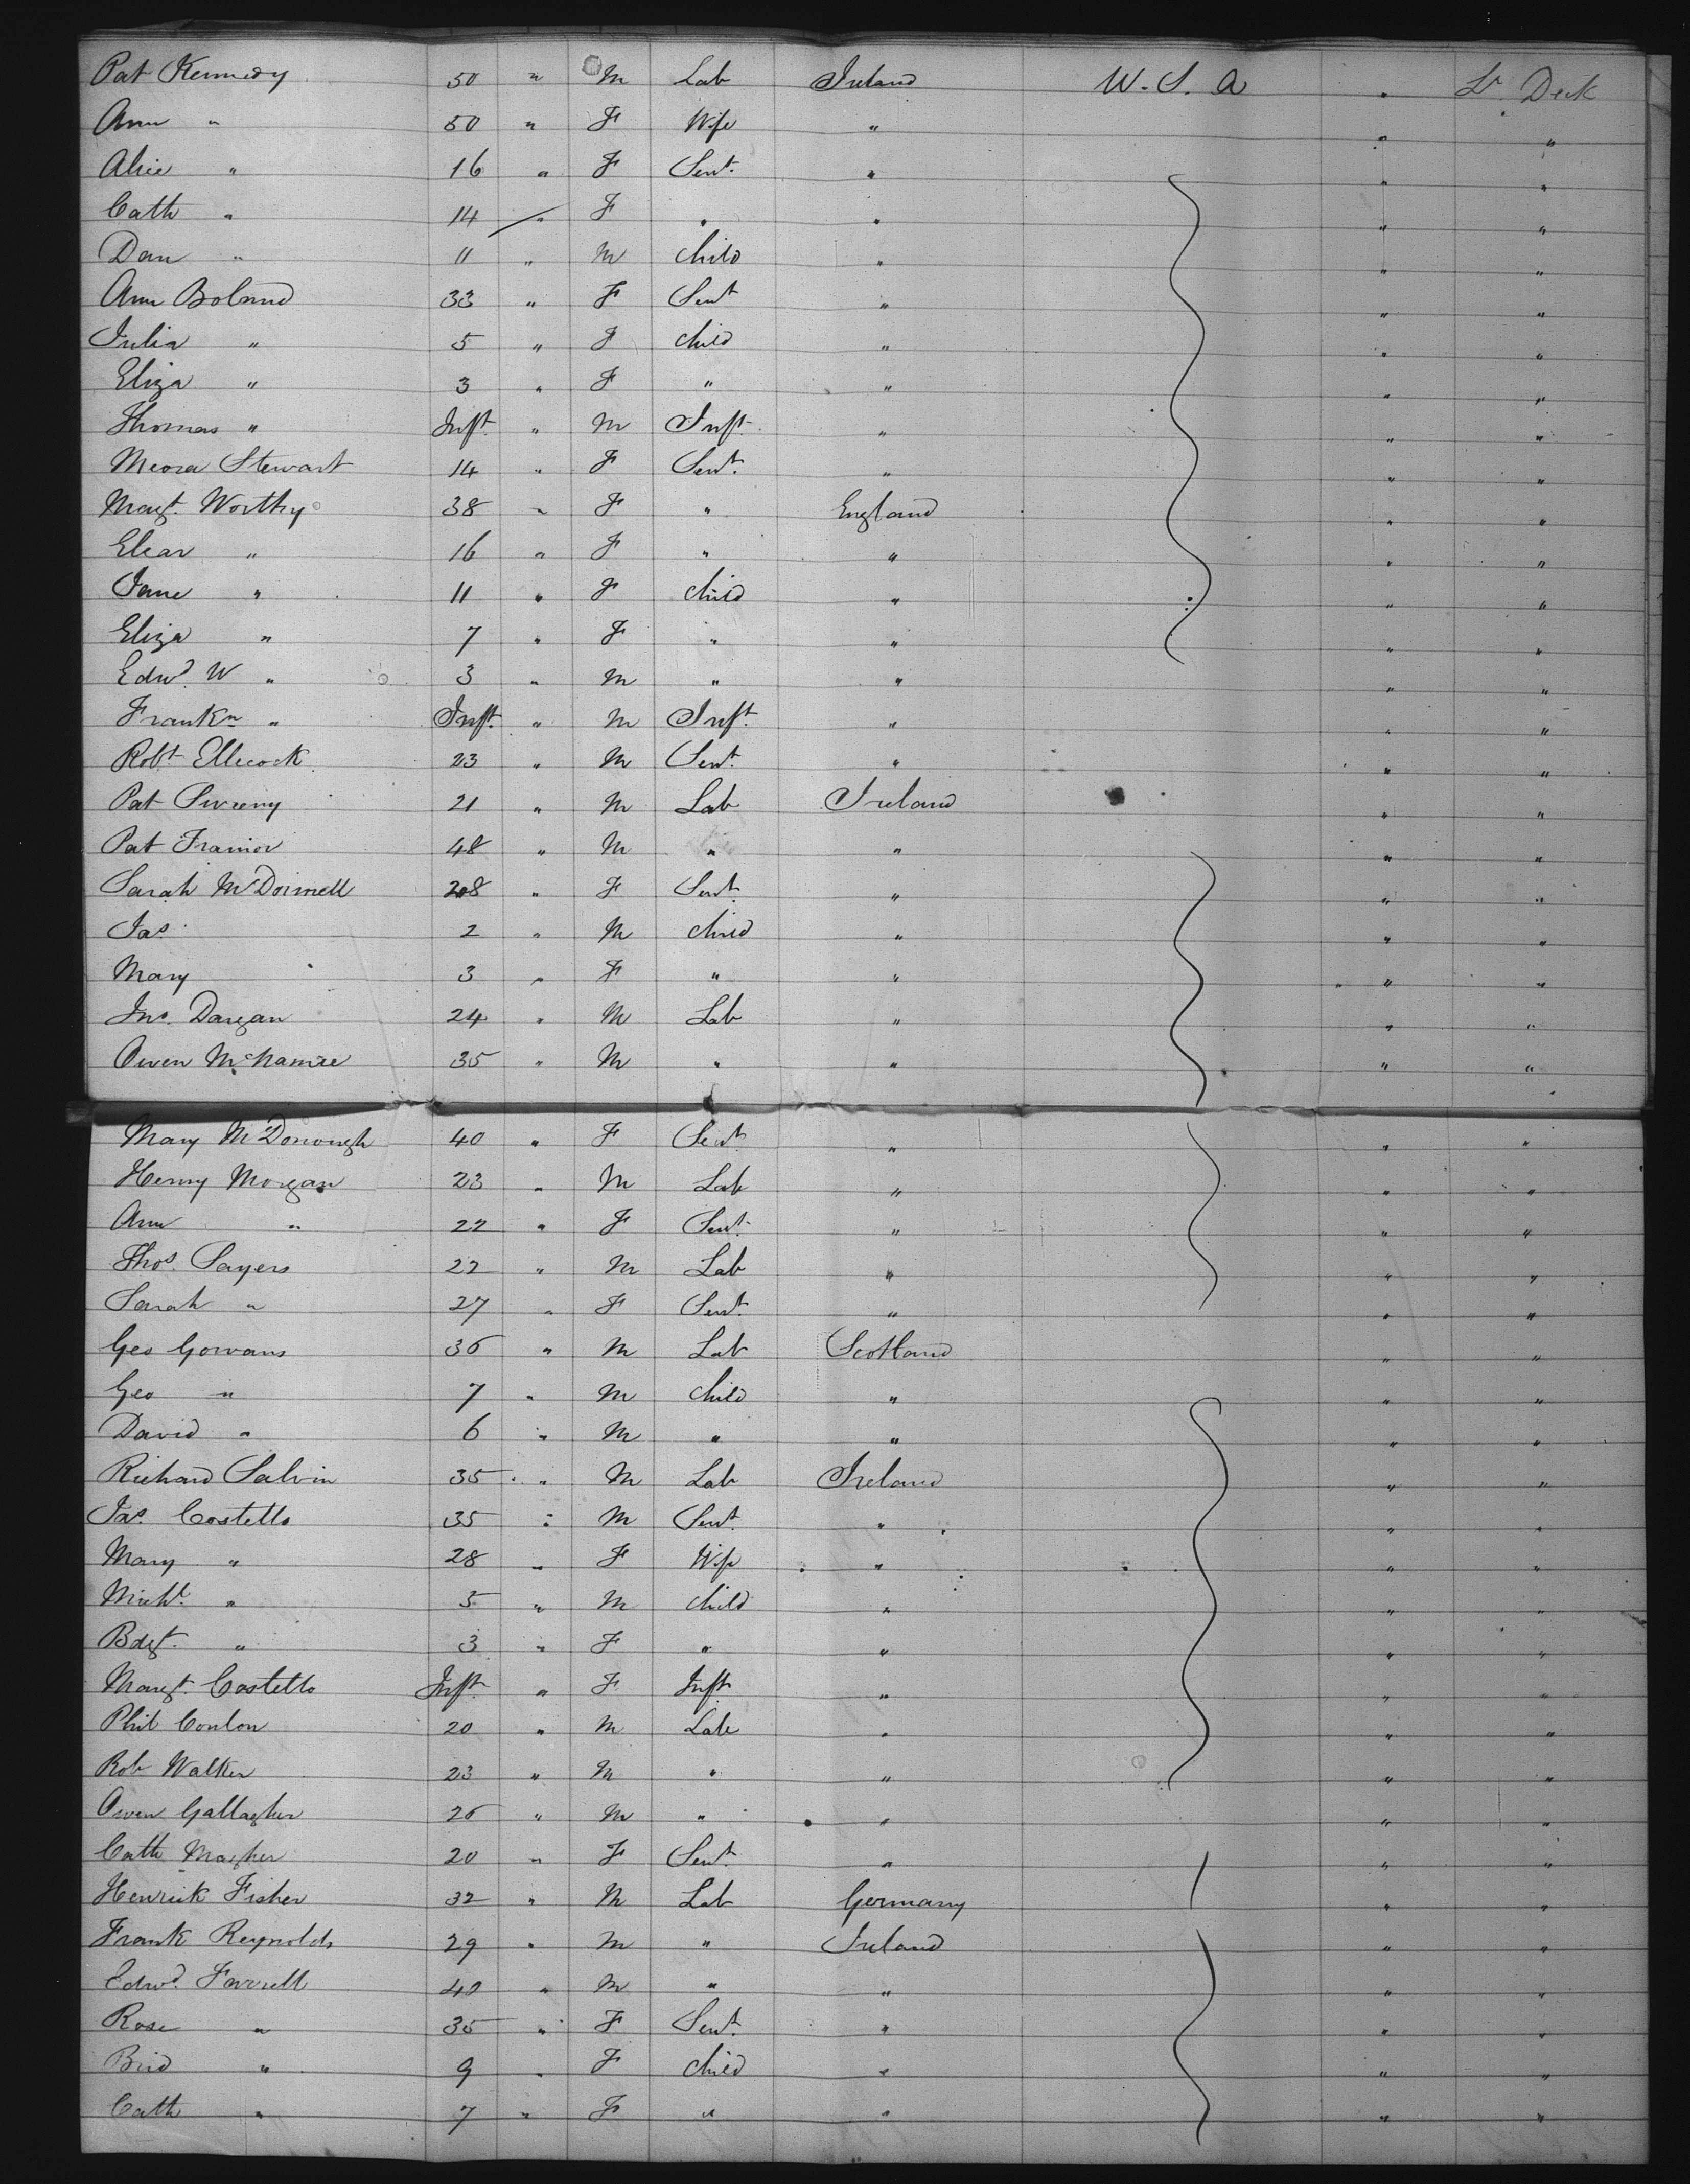 Pat Kennedy 50 " M Lab Ireland U. S. A " Lr Deck
Ann " 50 " F Wife " " "
Alice " 16 " F Servt. " " "
Cath " 14 " F " " " "
Dan " 11 " M Child " " "
Ann Boland 33 " F Servt " " "
Julia " 5 " F Child " " "
Eliza " 3 " F " " " "
Thomas " Inft. " M Inft. " " "
Stewart 14 " F Servt. " " "
Margt. Worthy 38 " F " England " "
Elear " 16 " F " " " "
Jane " 11 " F Child " " "
Eliza " 7 " F " " " "
Edwd. W " 3 " M " " " "
Frankn " Inft. " M Inft. " " "
Robt. Ellecock 23 " M Servt. " " "
Pat Sweeny 21 " M Lab Ireland " "
Pat Trainor 48 " M " " " "
Sarah McDonnell 28 " F Servt. " " "
Jas. 2 " M Child " " "
Mary 3 " F " " " "
Jno. Dargan 24 " M Lab " " "
Owen McNamee 35 " M " " " "
Mary McDonough 40 " F Servt " " "
Henry Morgan 23 " M Lab " " "
Ann " 22 " F Servt. " " "
Thos. Sayers 22 " M Lab " " "
Sarah " 27 " F Servt. " " "
Geo Gowans 36 " M Lab Scotland " "
Geo " 7 " M Child " " "
David " 6 " M " " " "
Richard Salvin 35 " M Lab Ireland " "
Jas. Costello 35 " M Servt. " " "
Mary " 28 " F Wife " " "
Michl. " 5 " M Child " " "
Bdgt. " 3 " F " " " "
Margt. Costello Inft. " F Inft " " "
Phil Conlon 20 " M Lab " " "
Rob Walker 23 " M " " " "
Owen Gallagher 26 " M " " " "
Cath Magher 20 " F Servt. " " "
Henrick Fisher 32 " M Lab Germany " "
Frank Reynolds 29 " M " Ireland " "
Edwd. Farrell 40 " M " " " "
Rose " 35 " F Servt. " " "
Brid " 9 " F Child " " "
Cath " 7 " F " " " "